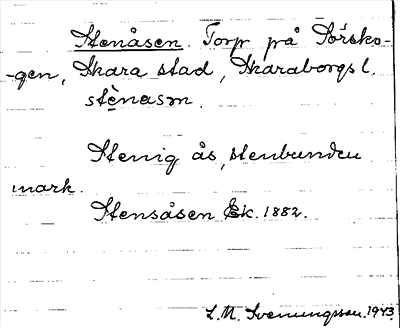 Stenåsen. Torp på Sörsko-
-gen, Skara stad, Skaraborgs l.
stènasn.
Stenig ås, stenbunden
mark.
Stensåsen Ek. 1882.
L. M. Svenungsson. 1943.